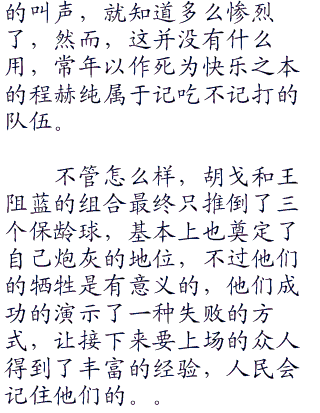 的叫声，就知道多么惨烈
了，然而，这并没有什么
用，常年以作死为快乐之本
的程赫纯属于记吃不记打的
队伍。
不管怎么样，胡戈和王
阻蓝的组合最终只推倒了三
个保龄球，基本上也奠定了
自己炮灰的地位，不过他们
的牺牲是有意义的，他们成
功的演示了一种失败的方
式，让接下来要上场的众人
得到了丰富的经验，人民会
记住他们的。。